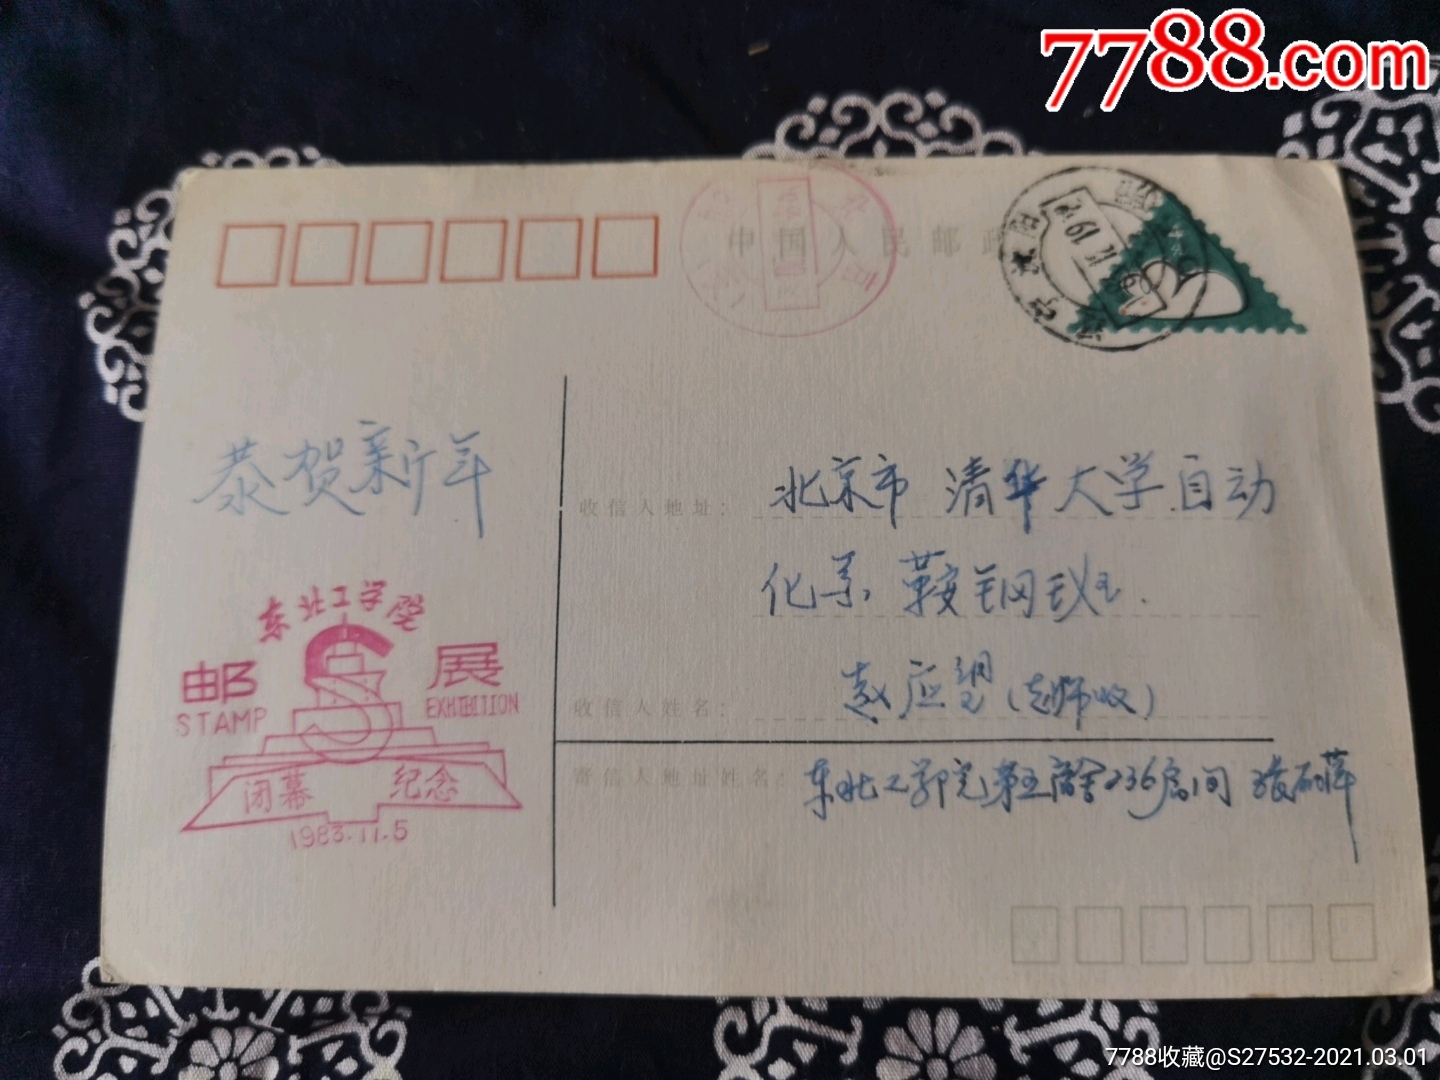 7788.com
中国人民邮政
恭贺新年
收信人地址：
北京市 清华大学自动
化系 鞍钢班.
收信人姓名：
赵应望（赵师收）
寄信人地址姓名：
东北工学院第五宿舍236房间
东北工学院
邮 展
STAMP EXHIBITION
闭幕 纪念
1983.11.5
7788收藏@S27532-2021.03.01